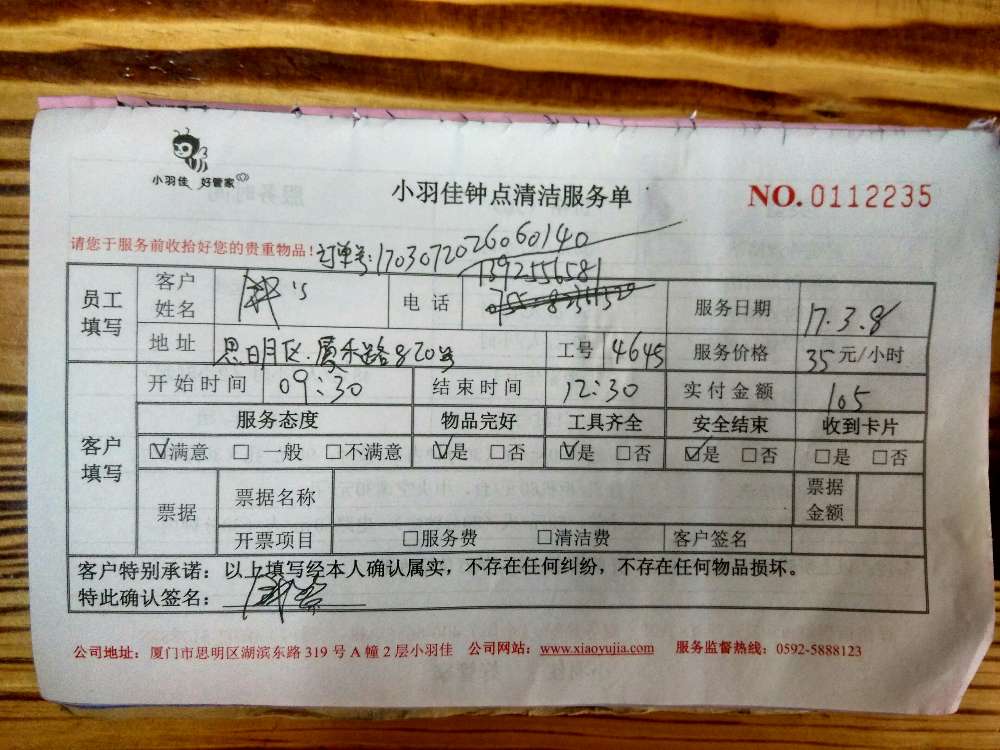 小羽佳 好管家
小羽佳钟点清洁服务单
NO.0112235
请您于服务前收拾好您的贵重物品!
订单号:1703072026060140
员工填写
客户姓名
电话
1392556581
服务日期 17.3.8
地址 思明区.厦禾路820号
工号 4645
服务价格 35元/小时
客户填写
开始时间 09:30
结束时间 12:30
实付金额 105
服务态度 物品完好 工具齐全 安全结束 收到卡片
☑满意 □一般 □不满意 ☑是 □否 ☑是 □否 ☑是 □否 □是 □否
票据
票据名称
票据金额
开票项目 □服务费 □清洁费 客户签名
客户特别承诺:以上填写经本人确认属实,不存在任何纠纷,不存在任何物品损坏。
特此确认签名:
公司地址:厦门市思明区湖滨东路319号A幢2层小羽佳 公司网站:www.xiaoyujia.com 服务监督热线:0592-5888123